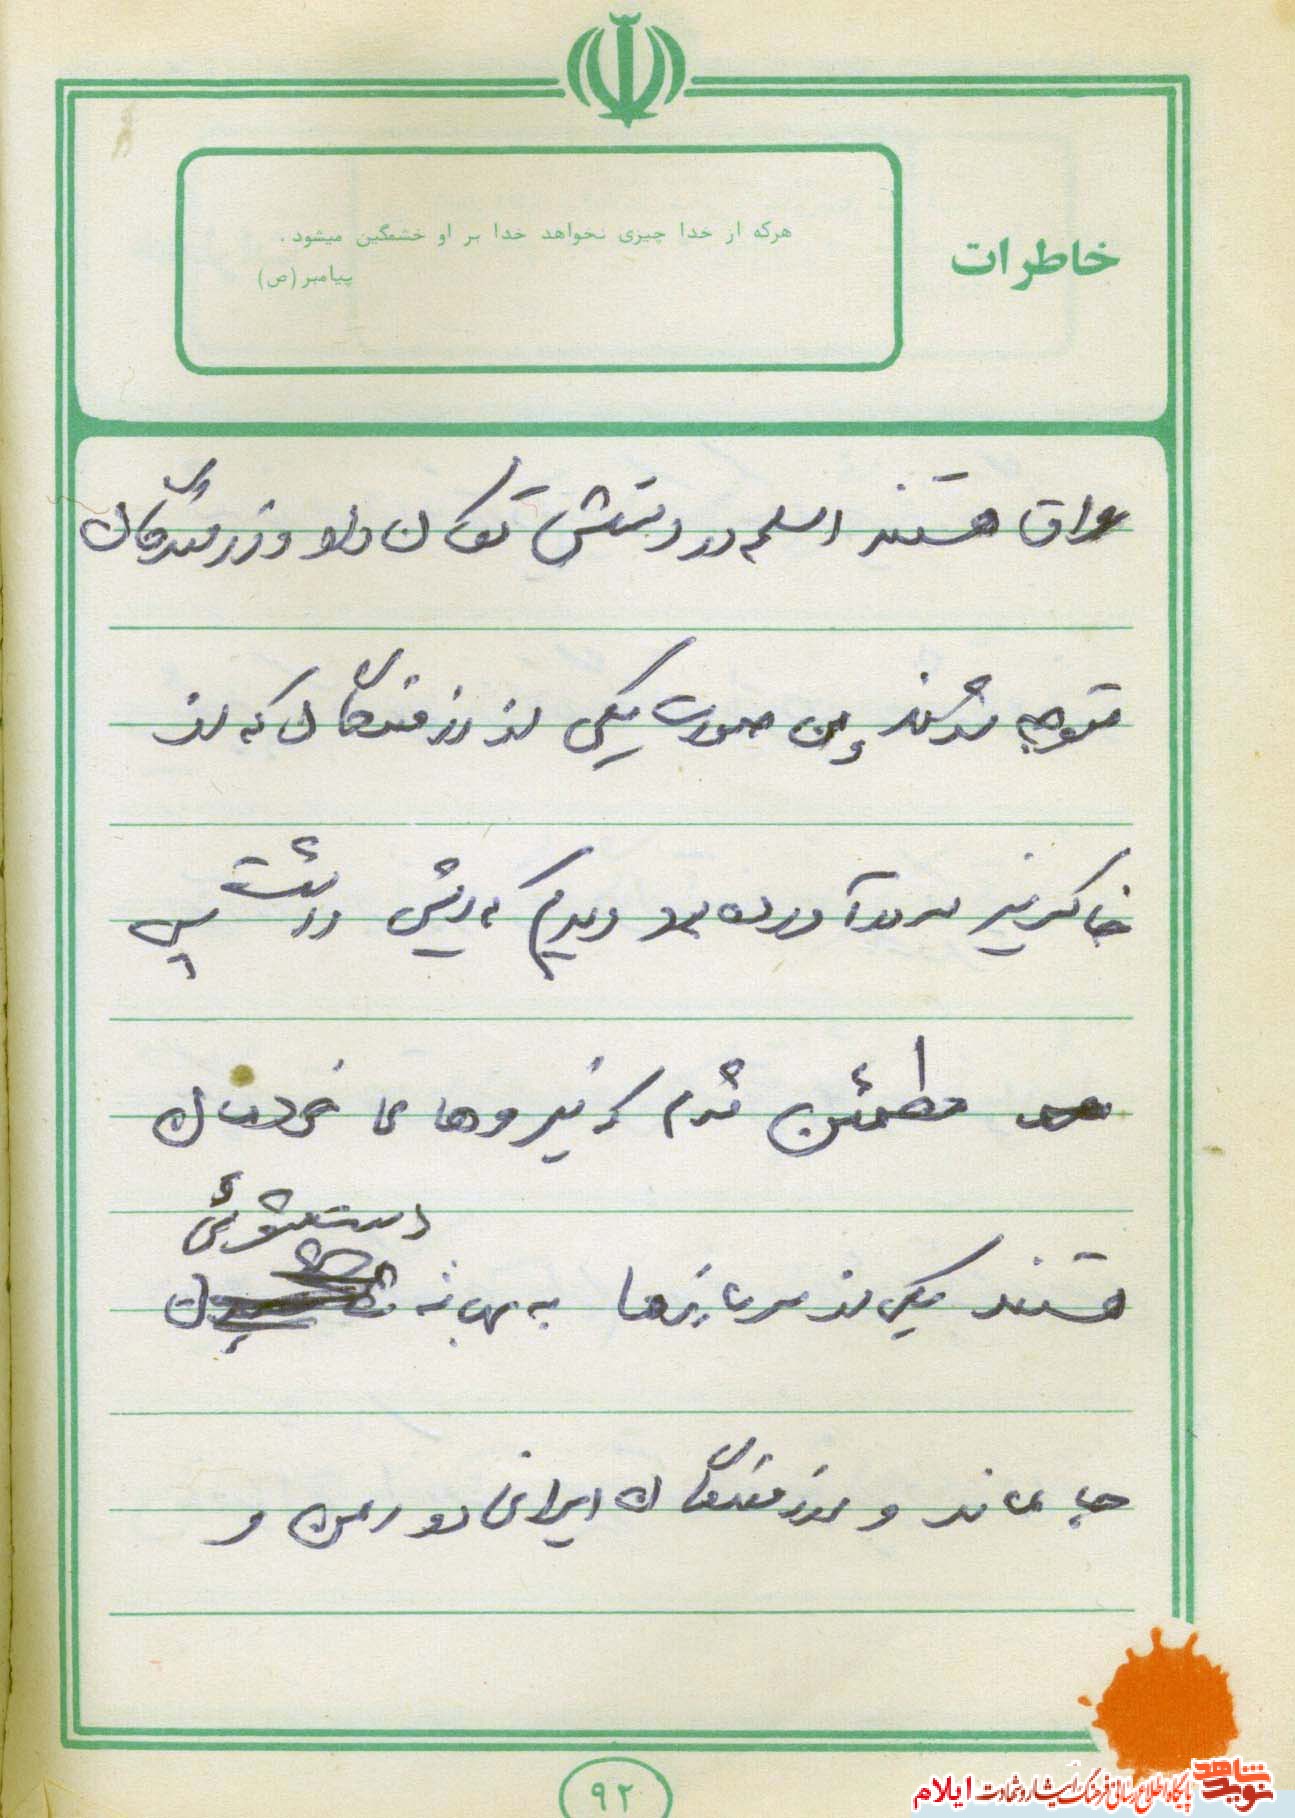 خاطرات
هرکه از خدا چیزی نخواهد خدا بر او خشمگین میشود.
پیامبر (ص)
عراق هستند اسلم در دستش تکان داد و رزمندگان
متوجه شدند من صورت یکی از رزمندگان که از
خاکریز سر در آورده بود دیدم که ریش داشت پس
مطمئن شدم که نیروهای خودمان
دستشوئی
هستند یکی از سربازها به بهانه
جا ماند و رزمندگان ایرانی دور من و
۹۲
نوید شاهد
پایگاه اطلاع رسانی فرهنگ ایثار و شهادت ایلام